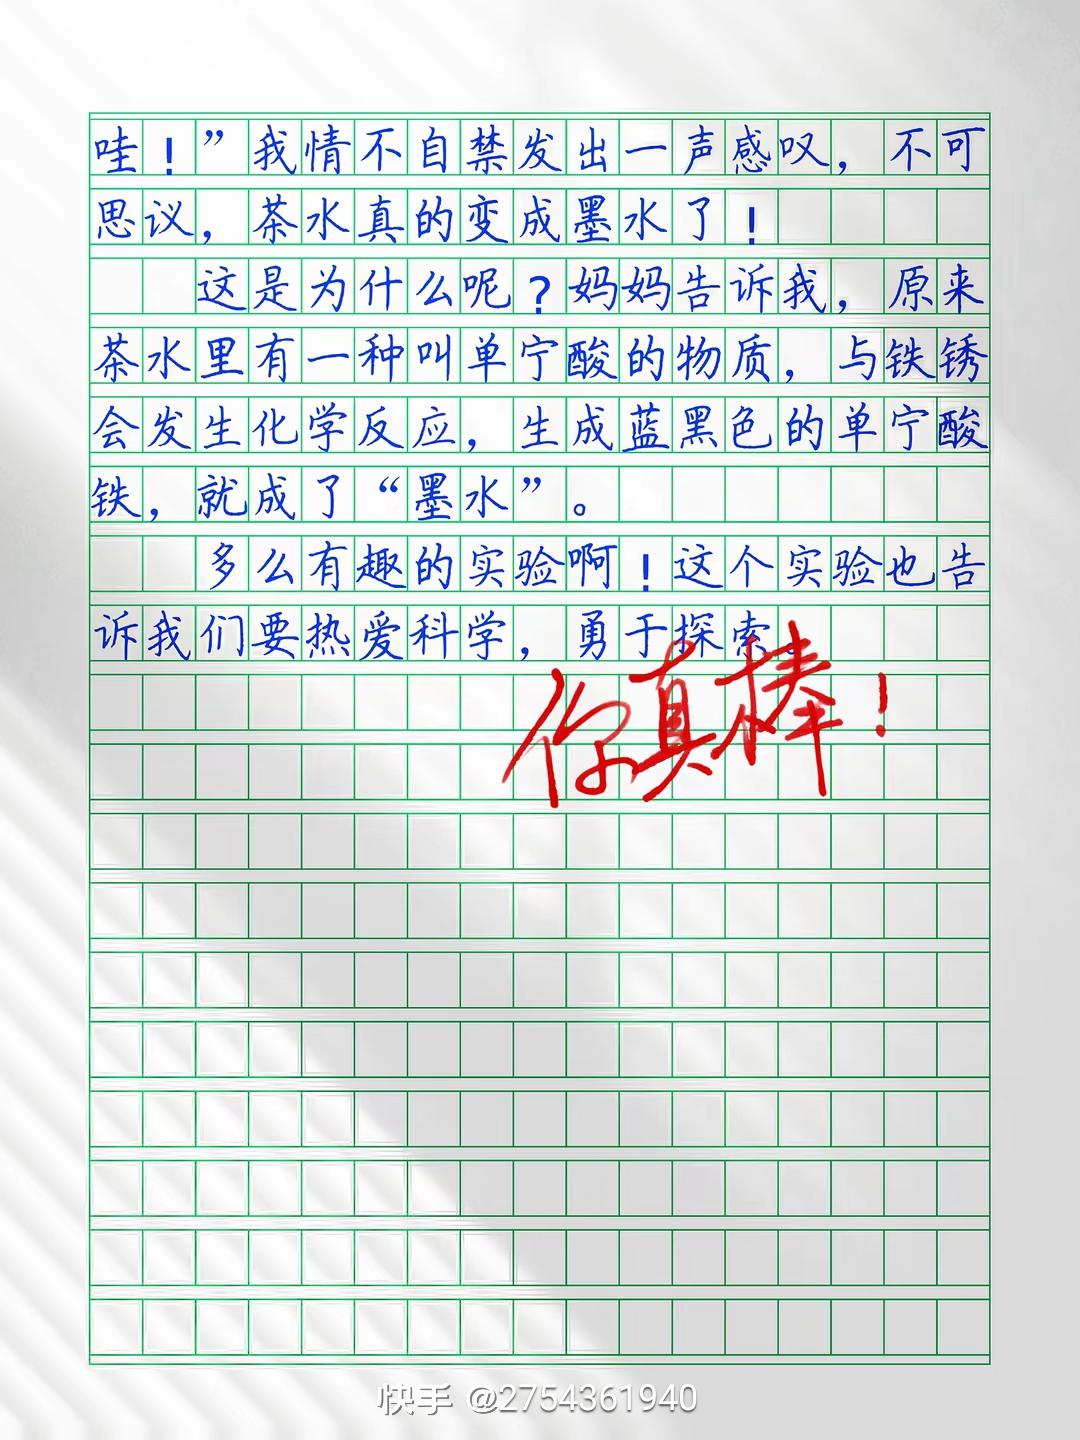 哇！”我情不自禁发出一声感叹，不可
思议，茶水真的变成墨水了！
这是为什么呢？妈妈告诉我，原来
茶水里有一种叫单宁酸的物质，与铁锈
会发生化学反应，生成蓝黑色的单宁酸
铁，就成了“墨水”。
多么有趣的实验啊！这个实验也告
诉我们要热爱科学，勇于探索。
你真棒！
快手 @2754361940